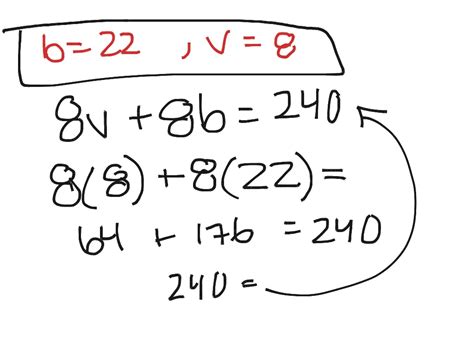 b=22 , v=8
8v+8b=240
8(8)+8(22)=
64 + 176 = 240
240 =